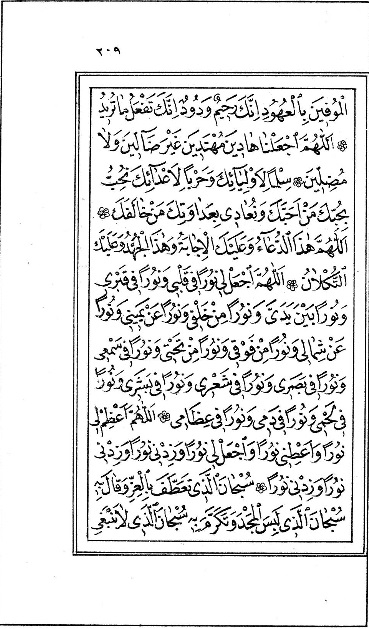 ٢٠٩
الْمُوفِينَ بِالْعُهُودِ اِنَّكَ رَحِيمٌ وَدُودٌ اِنَّكَ تَفْعَلُ مَا تُرِيدُ
اَللّٰهُمَّ اجْعَلْنَا هَادِينَ مُهْتَدِينَ غَيْرَ ضَآلِّينَ وَلَا
مُضِلِّينَ سِلْمًا لِاَوْلِيَائِكَ وَحَرْبًا لِاَعْدَائِكَ نُحِبُّ
بِحُبِّكَ مَنْ اَحَبَّكَ وَنُعَادِى بِعَدَاوَتِكَ مَنْ خَالَفَكَ
اَللّٰهُمَّ هٰذَا الدُّعَاءُ وَعَلَيْكَ الْاِجَابَةُ وَهٰذَا الْجُهْدُ وَعَلَيْكَ
التُّكْلَانُ اَللّٰهُمَّ اجْعَلْ لِى نُورًا فِى قَلْبِى وَنُورًا فِى قَبْرِى
وَنُورًا بَيْنَ يَدَىَّ وَنُورًا مِنْ خَلْفِى وَنُورًا عَنْ يَمِينِى وَنُورًا
عَنْ شِمَالِى وَنُورًا مِنْ فَوْقِى وَنُورًا مِنْ تَحْتِى وَنُورًا فِى سَمْعِى
وَنُورًا فِى بَصَرِى وَنُورًا فِى شَعْرِى وَنُورًا فِى بَشَرِى وَنُورًا
فِى لَحْمِى وَنُورًا فِى دَمِى وَنُورًا فِى عِظَامِى اَللّٰهُمَّ اَعْظِمْ لِى
نُورًا وَاَعْطِنِى نُورًا وَاجْعَلْ لِى نُورًا وَزِدْنِى نُورًا وَزِدْنِى
نُورًا وَزِدْنِى نُورًا سُبْحَانَ الَّذِى تَعَطَّفَ بِالْعِزِّ وَقَالَ بِهِ
سُبْحَانَ الَّذِى لَبِسَ الْمَجْدَ وَتَكَرَّمَ بِهِ سُبْحَانَ الَّذِى لَا يَنْبَغِى